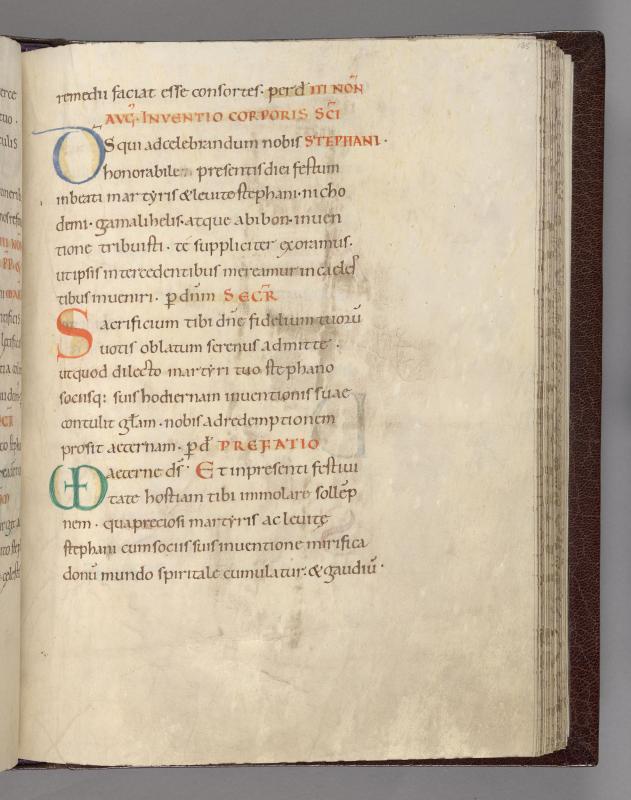 185
remedii faciat esse consortes· perd̄ III NON̄
AVḠ· INVENTIO CORPORIS SC̄I
D̄S qui adcelebrandum nobis STEPHANI·
honorabilem presentis diei festum
inbeati martyris & leuite stephani· nicho
demi· gamalihelis· atque abibon· inuen
tione tribuisti· te suppliciter exoramus·
ut ipsis intercedentibus mereamur incaeles
tibus inueniri· p̄ dn̄m SECR̄
Sacrificium tibi dn̄e fidelium tuorū
uotis oblatum serenus admitte·
ut quod dilecto martyri tuo stephano
sociisq: suis hodiernam inuentionis suae
contulit gl̄am· nobis ad redemptionem
prosit aeternam· p̄d̄ PREFATIO
aeterne ds̄· Et in presenti festiui
tate hostiam tibi immolare sollēp
nem· qua preciosi martyris ac leuite
stephani cum sociis suis inuentione mirifica
donū mundo spiritale cumulatur· & gaudiū·